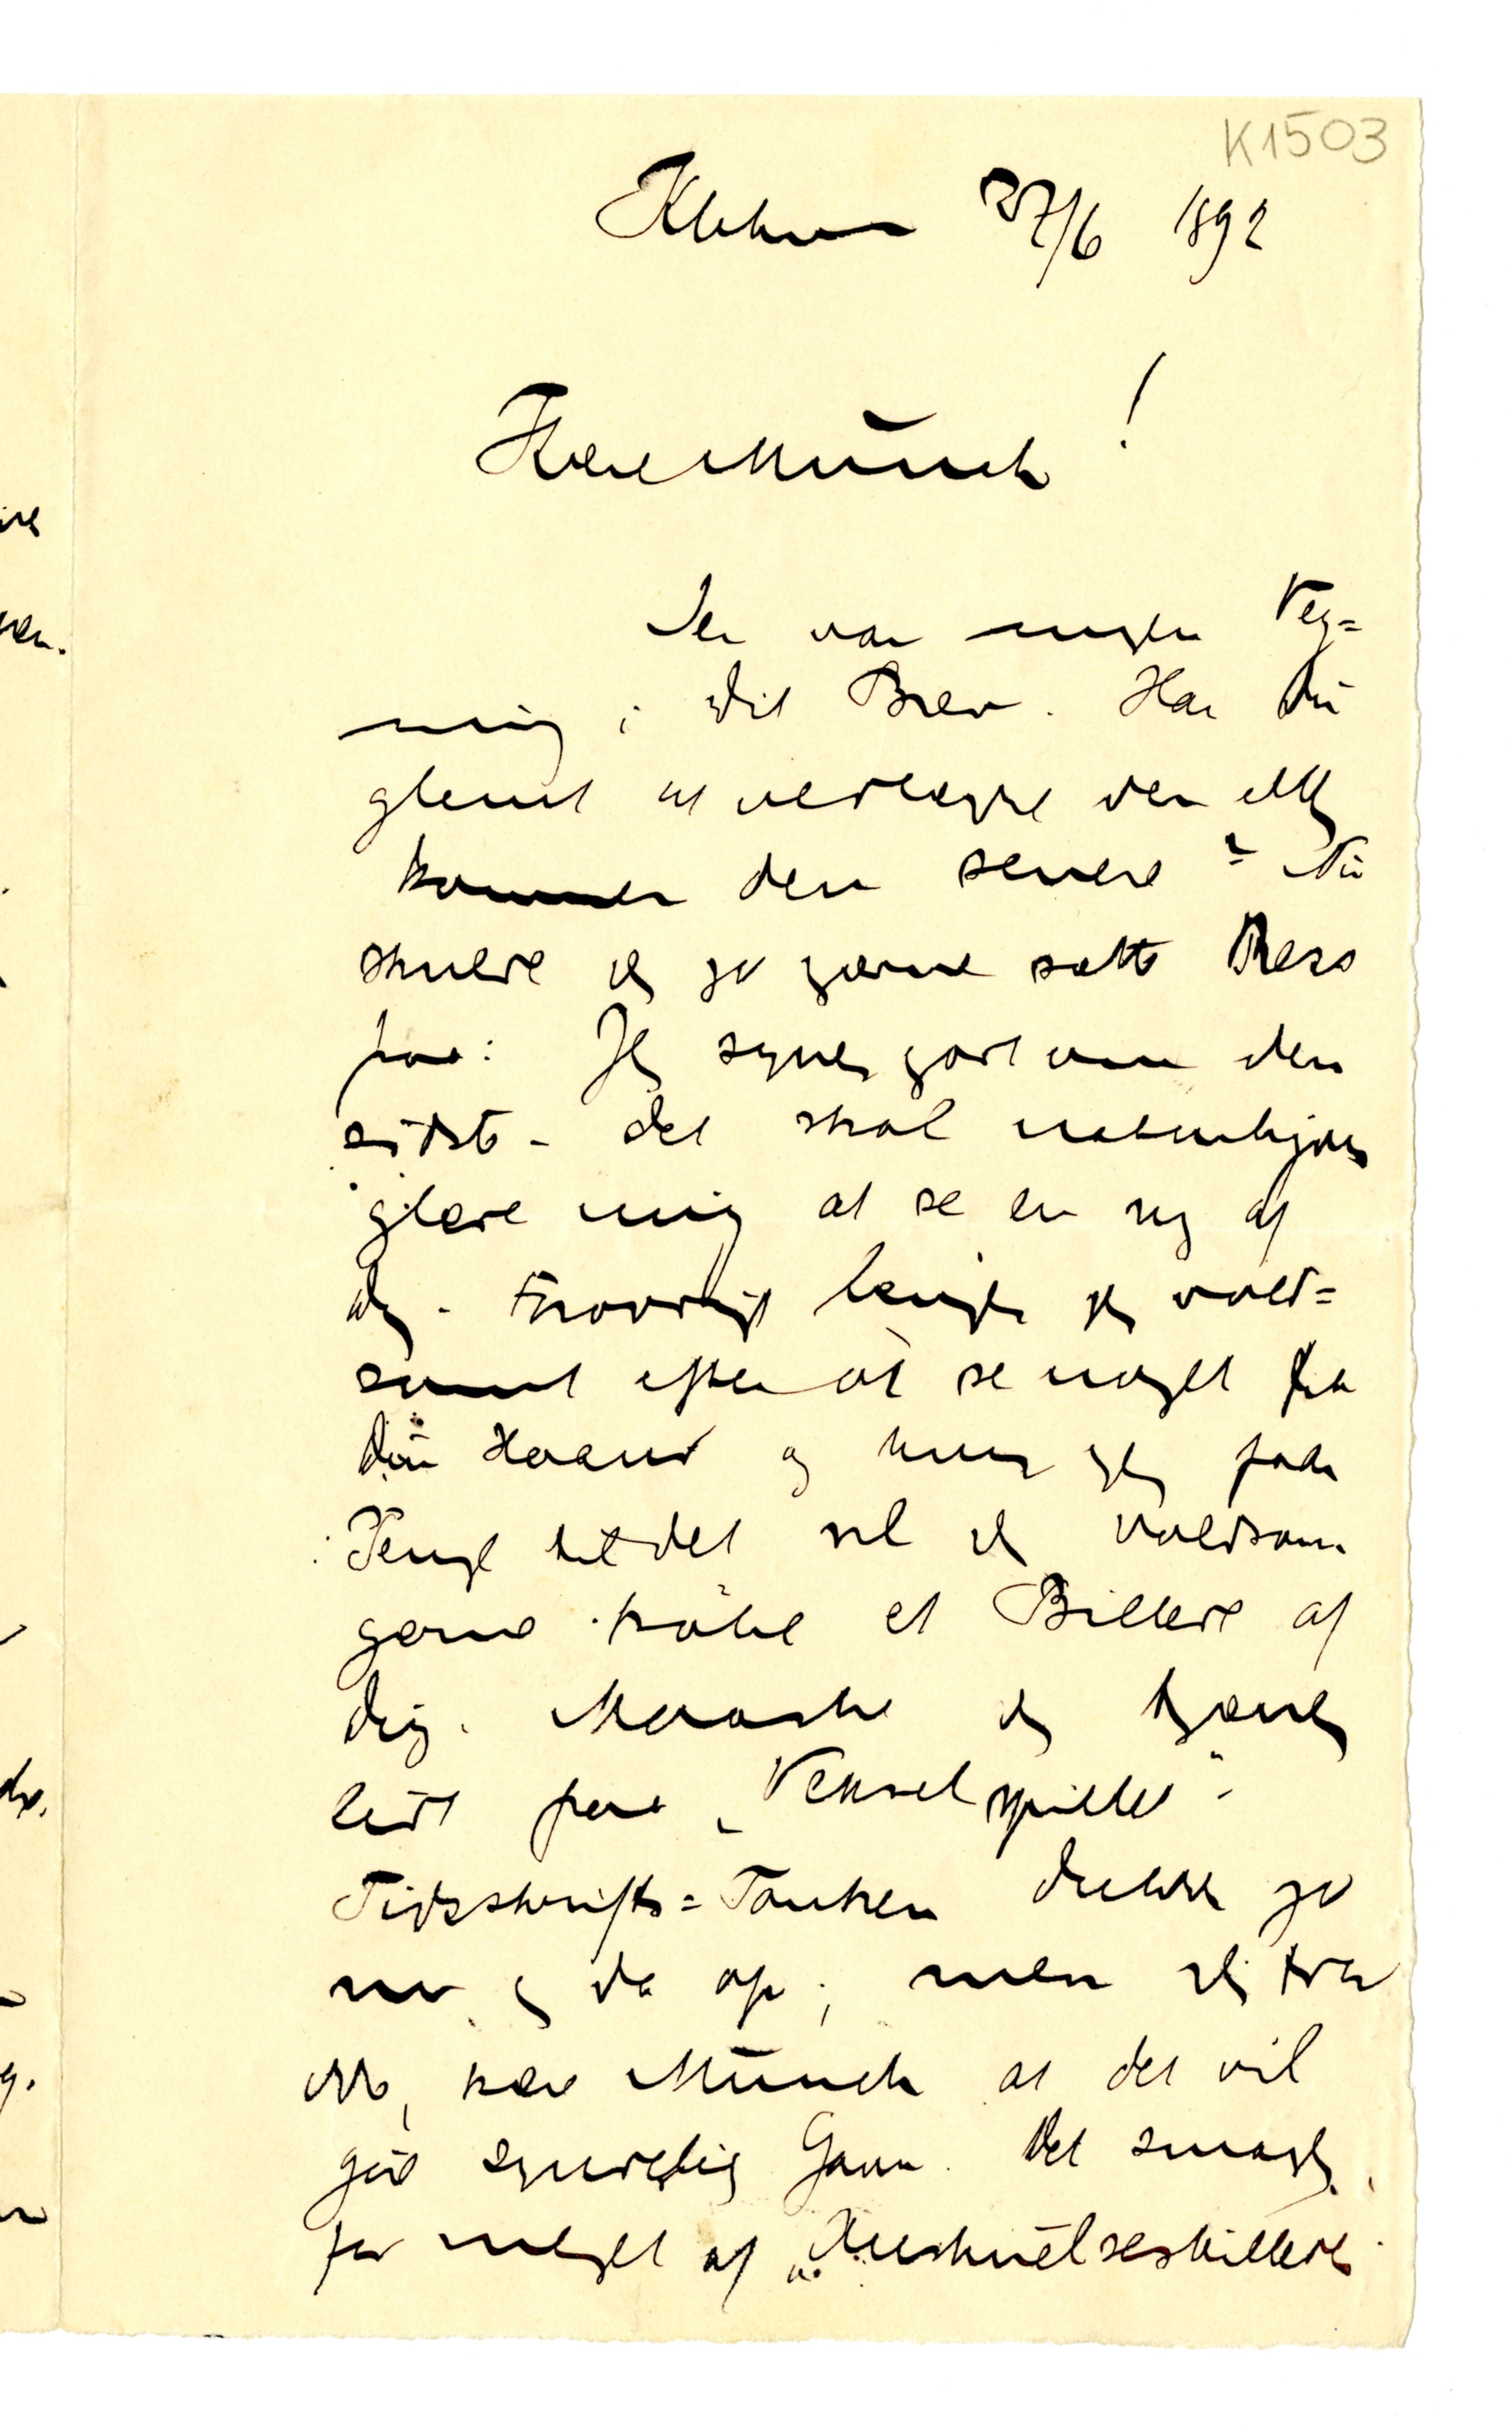 K1503
Kbhvn 27/6 1892
Kære Münch!
Der var ingen Teg=
ning i dit Brev. Har Du
glemt at vedlægge den ell
kommer den senere? Nu
skulde jeg jo gærne sætte Pres
paa: Jeg synes godt om den
sidste – det skal naturligvis
glæde mig at se en ny af
dig. Forøvrigt længes jeg vold=
somt efter at se noget fra
din Haand og kunde jeg faa
Penge til det vil jeg voldsom
gerne købe et Billede af
dig. Maaske jeg tjener
lidt paa „Vekselspillet".
Tidsskrifts=Tanken dukker jo
nu og da op; men jeg tror
ikke, kære Münch at det vil
gøre synderlig Gavn. Det smager
for meget af „Henrivelsesbilleder